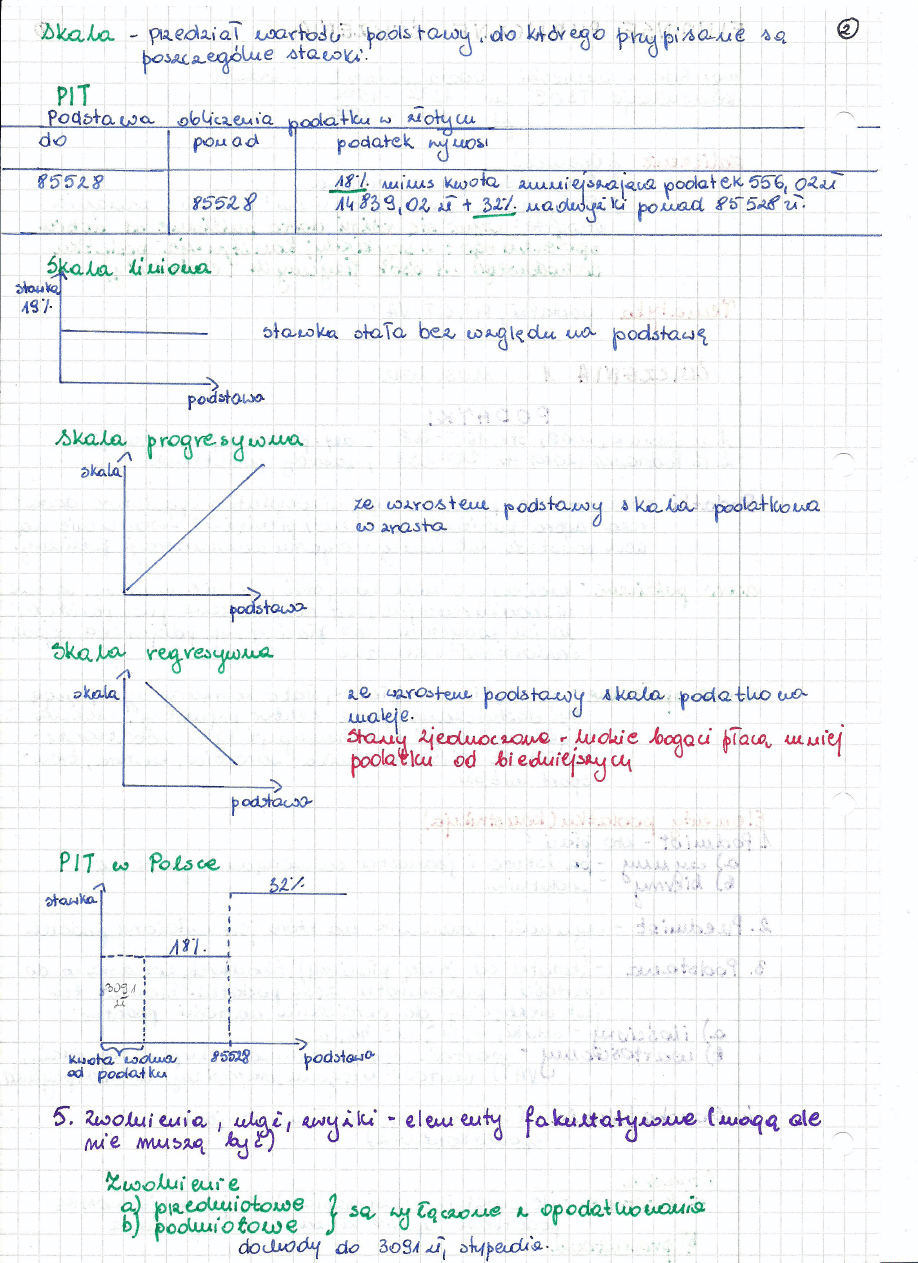 ②
Skala - przedział wartości podstawy, do którego przypisane są
poszczególne stawki.
PIT
Podstawa obliczenia podatku w złotych
do ponad podatek wynosi
85528 18% minus kwota zmniejszająca podatek 556,02 zł
85528 14839,02 zł + 32% nadwyżki ponad 85528 zł.
Skala liniowa
stawka
19%
stawka stała bez względu na podstawę
podstawa
Skala progresywna
skala
ze wzrostem podstawy skala podatkowa
wzrasta
podstawa
Skala regresywna
skala
ze wzrostem podstawy skala podatkowa
maleje.
Stany Zjednoczone - ludzie bogaci płacą mniej
podatku od biedniejszych
podstawa
PIT w Polsce
32%
stawka
18%
3091
zł
kwota wolna
od podatku
85528
podstawa
5. Zwolnienia, ulgi, zwyżki - elementy fakultatywne (mogą ale
nie muszą być)
Zwolnienie
a) przedmiotowe
b) podmiotowe } są wyłączone z opodatkowania
dochody do 3091 zł, stypendia.